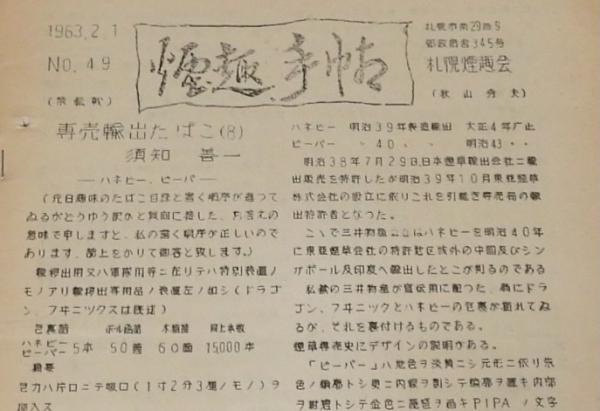 1963.2.1
No.49
(禁転載)
煙趣手帖
札幌市南29西9
郵政局舎345号
札幌煙趣会
(秋山秀夫)
専売輸出たばこ(8)
須知 善一
──ハネビー、ピーバー──
(元日趣味のたばこ目録と書く順序が違って
ゐるがどうゆう訳かと質問に接した、お答えの
意味で申しますと、私の書く順序が正しいので
あります、誌上をかりて御答と致します。)
輸移出用又ハ軍隊用等ニ在リテハ特別装置ノ
モノアリ輸移出専用品ノ装置左ノ如シ(ドラゴ
ン、フヰニックスは既述)
包裏面 ボール函詰 木箱詰 同上本数
ハネビー
ピーバー 5本 50個 60箇 15,000本
概要
包カハ片口ニテ吸口(1寸2分3厘ノモノ)ヲ
挿入ス
ハネビー 明治39年製造輸出 大正4年廃止
ピーバー 〃 40. 〃 明治43..
明治38年7月29日、日本煙草輸出会社ニ輸
出販売を特許したが明治39年10月東亜煙草
株式会社の設立に依りこれを引継ぎ専売局の輸
出特許者となった。
こゝで三井物産はハネビーを明治40年
に東亜煙草会社の特許地区域外の中国及びシン
ガポール及印度へ輸出したとこが判るのである
私蔵の三井物産が宣伝用に配つた、為にドラ
ゴン、フヰニックとハネビーの包裏が貼れてゐ
るが、それを裏付けるものである。
煙草専売史にデザインの説明がある。
「ピーバー」ハ地色ヲ淡黄ニシ元形ニ依リ朱
色ノ輪廓トシ更ニ内線ヲ劃シテ輪廓ヲ置キ内部
トシテ金色ニ PIPA ノ文字